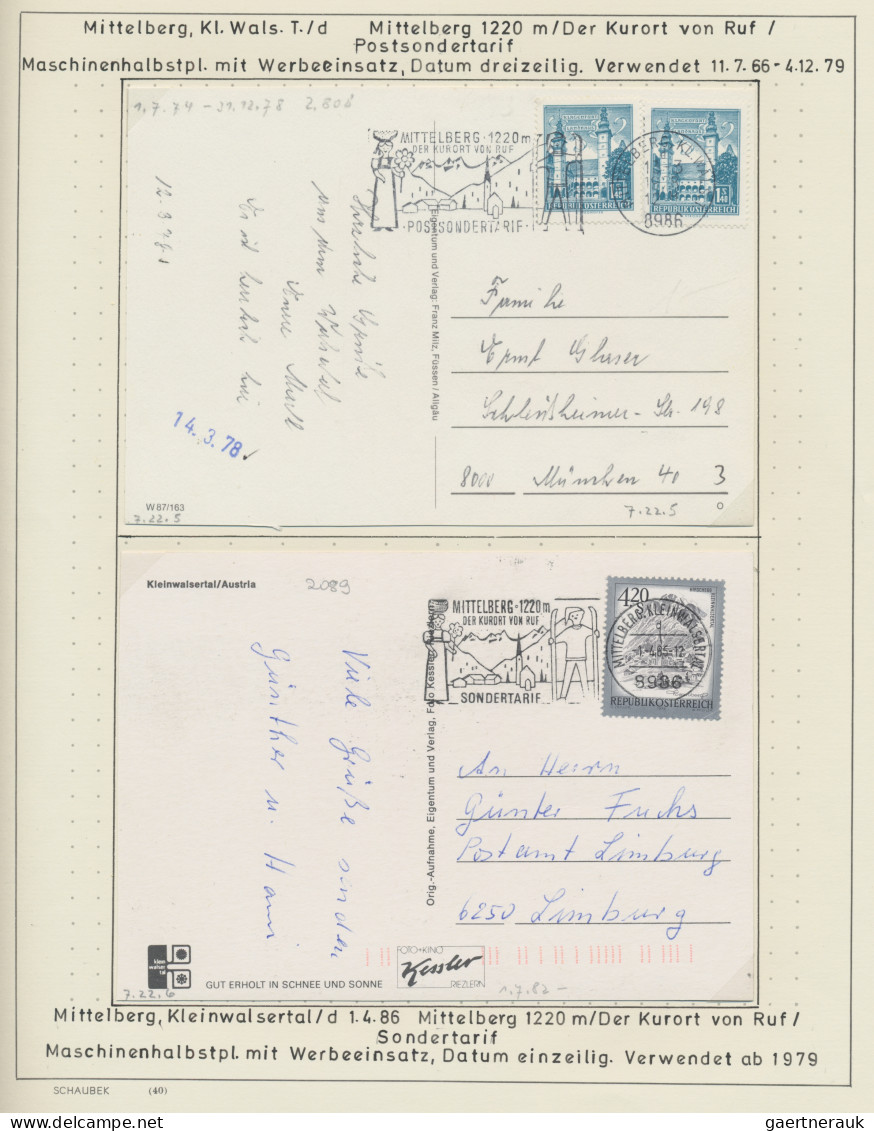 Mittelberg, Kl. Wals. T./d Mittelberg 1220 m/Der Kurort von Ruf /
Postsondertarif
Maschinenhalbstpl. mit Werbeeinsatz, Datum dreizeilig. Verwendet 11.7.66 - 4.12.79
1.7.74 - 31.12.78
MITTELBERG · 1220m
DER KURORT VON RUF
· POSTSONDERTARIF ·
8986
REPUBLIK ÖSTERREICH
REPUBLIK ÖSTERREICH
Herzliche Grüße
14.3.78
Eigentum und Verlag: Franz Milz, Füssen / Allgäu
Familie
Ernst Glaser
Schleißheimer-Str. 198
8000 München 40 3
W 87/163
7.22.5
7.22.5
Kleinwalsertal/Austria
2089
MITTELBERG · 1220m
DER KURORT VON RUF
SONDERTARIF
4.20
MITTELBERG, KLEINWALSERTAL
8986
REPUBLIK ÖSTERREICH
Viele Grüße senden
Günther u. Hanni
Orig.-Aufnahme, Eigentum und Verlag, Foto Kessler, Riezlern
An Herrn
Günter Fuchs
Postamt Limburg
6250 Limburg
klein
walser
tal
GUT ERHOLT IN SCHNEE UND SONNE
FOTO+KINO
Kessler
RIEZLERN
7.22.6
1.7.82 -
Mittelberg, Kleinwalsertal/d 1.4.86 Mittelberg 1220 m/Der Kurort von Ruf /
Sondertarif
Maschinenhalbstpl. mit Werbeeinsatz, Datum einzeilig. Verwendet ab 1979
SCHAUBEK (40)
gaertnerauk